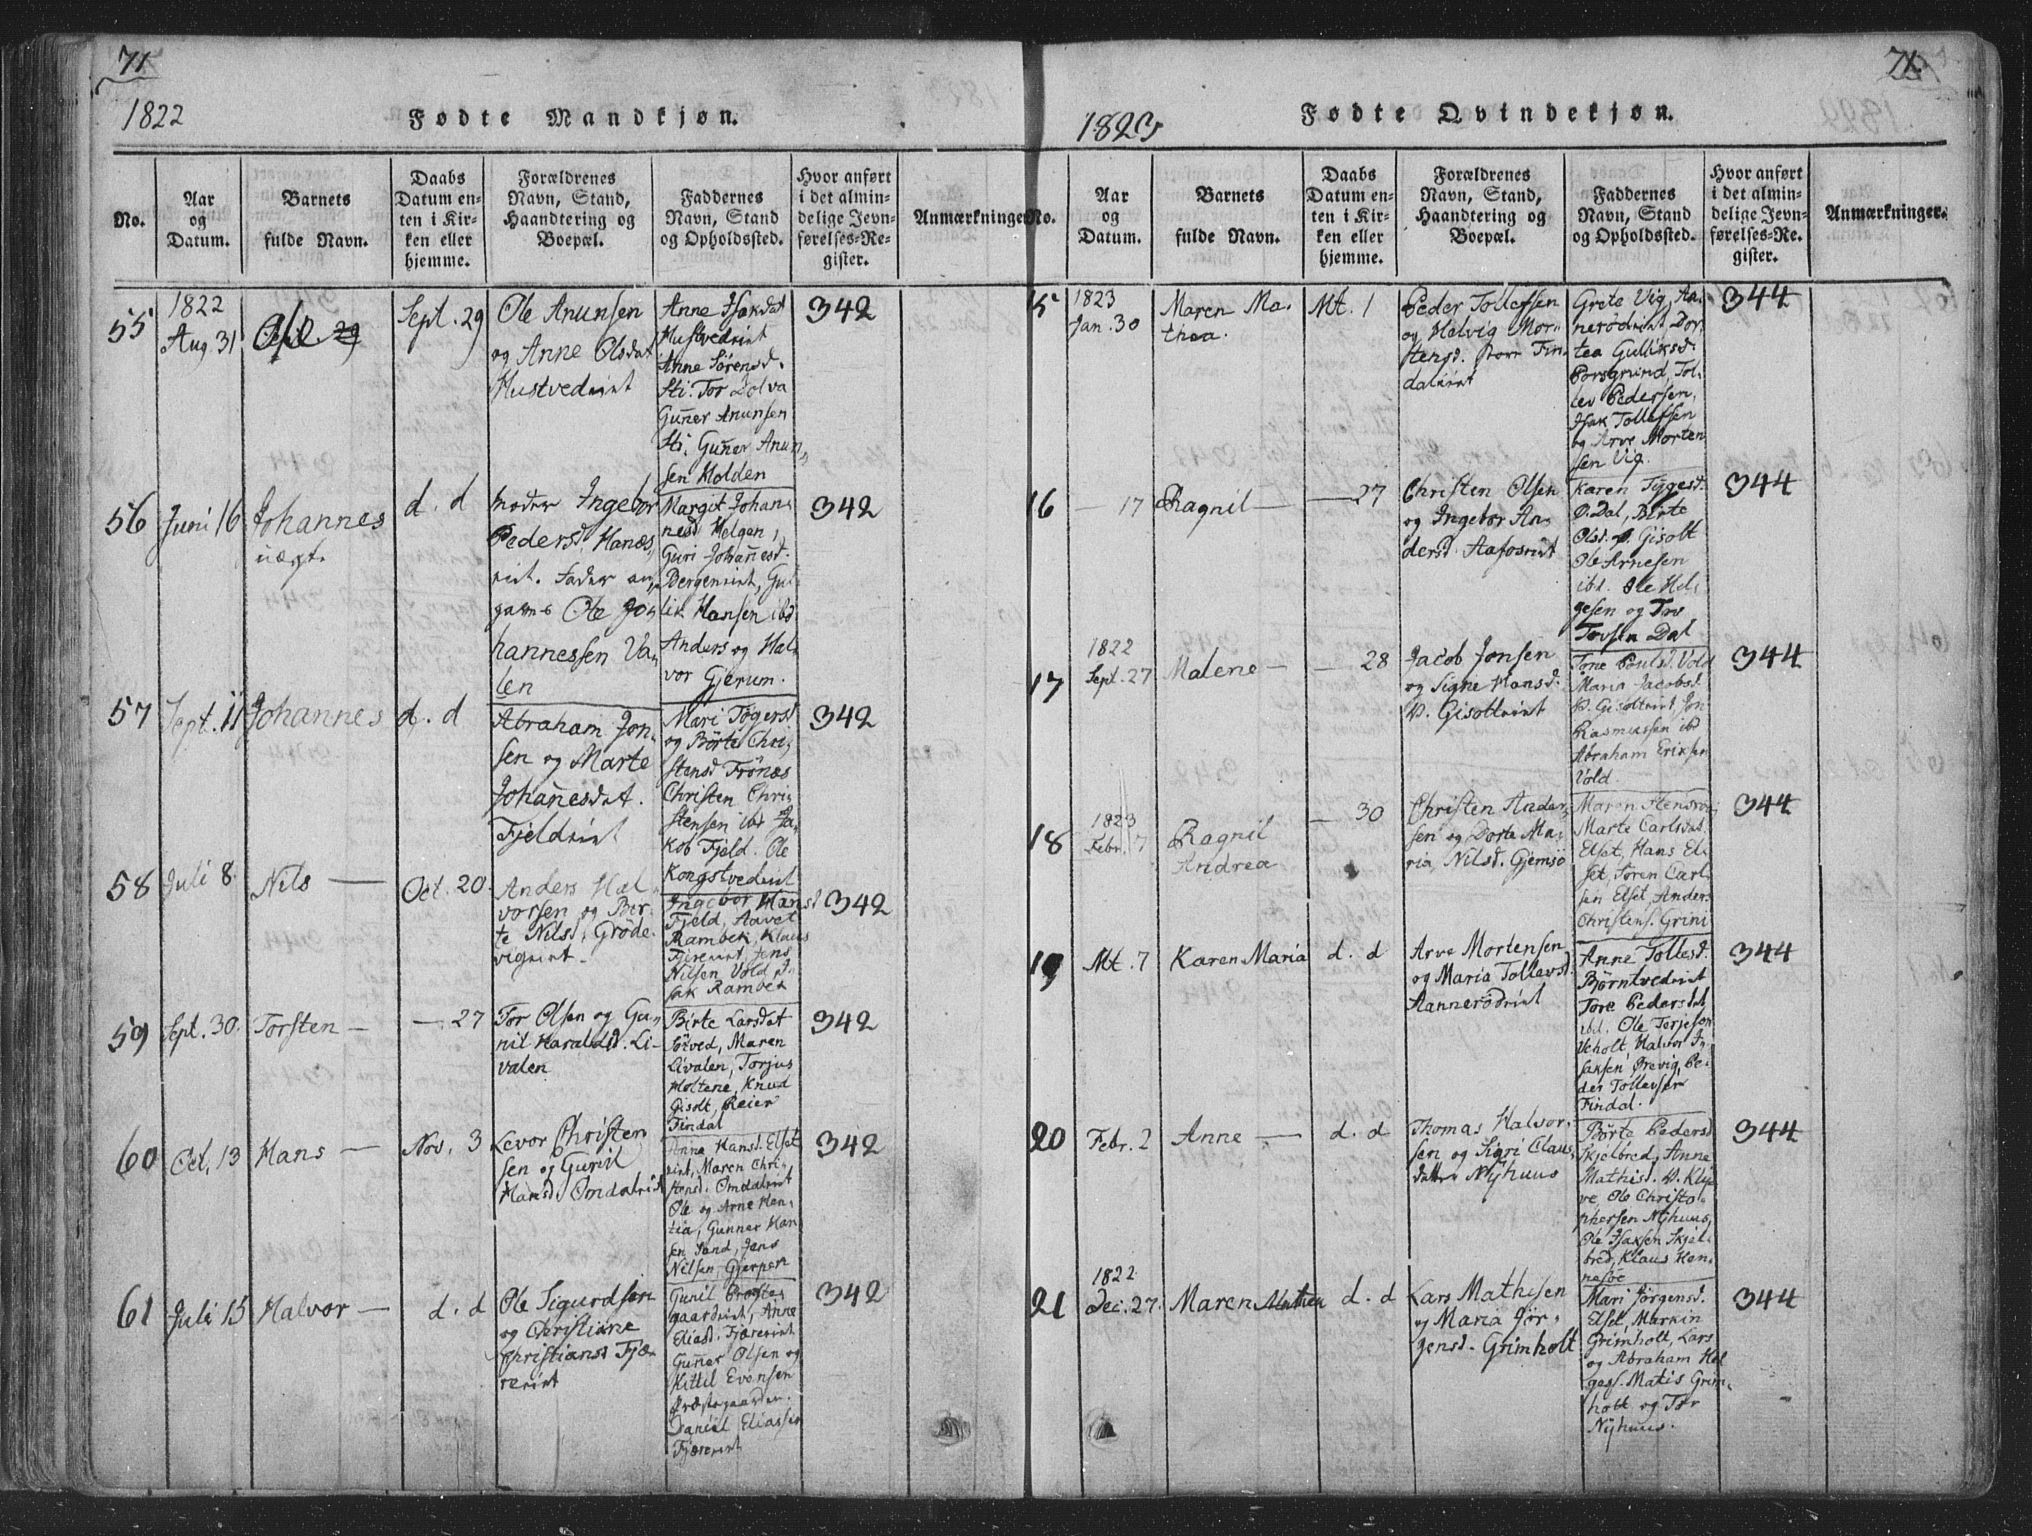 71
1822
Fødte Mandkjøn.
No.
Aar
og
Datum.
Barnets
fulde Navn.
Daabs
Datum en-
ten i Kir-
ken eller
hjemme.
Forældrenes
Navn, Stand,
Haandtering og
Boepæl.
Faddernes
Navn, Stand
og Opholdssted.
Hvor anført
i det almin-
delige Jevn-
førelses-Re-
gister.
Anmærkninger
55
1822
Aug. 31
Sept. 29
Ole Anunsen
og Anne Olsdat
Hustvedeiet
Anne Isakdat
Hustvedeiet
Anne Sörensd.
Sti. Tor Dolva
Guñer Anunsen
Sti. Guñer Anun„
sen Holden
342
56
Juni 16
Johannes
uægt.
d. d
Moder Ingebor
Pedersd. Hanæs„
eiet. Fader an„
gives Ole Jo„
hannessen Va„
len
Margit Johan„
nesd. Helgen,
Guri Johañesd.
Bergeneiet, Gul„
lik Hansen ibd
Anders og Hal„
vor Gjerum.
342
57
Sept. 11
Johannes
d. d
Abraham Jon„
sen og Marte
Johañesdat.
Fjeldeiet
Mari Tögersd
og Börte Chri„
stensd Trönæs
Christen Chri„
stensen ibd Ja„
kob Fjeld. Ole
Kongstvedeiet
342
58
Juli 8.
Nils
Oct. 20.
Anders Hal„
vorsen og Bir„
te Nilsd, Gröde„
vigeiet.
Ingebor Hansd
Fjeld, Aavet
Rambek, Klaus
Fjæreeiet, Jens
Nilsen Vold, I„
sak Rambek
342
59
Sept. 30.
Torsten
27
Tor Olsen og Gu„
nil Haraldsd. Li-
valen
Birte Larsdat
Sötved, Maren
Livalen, Torjus
Holtene, Knud
Gisolt, Reier
Findal
342
60
Oct. 13
Hans
Nov. 3
Levor Christen
sen og Guril
Hansd. Omdaleiet
Anna Hansd. Elset
eiet, Maren Chri„
stensd. Omdaleiet
Ole og Arne Hen„
tia, Gunner Han
sen Sand, Jens
Nilsen, Gjerpen
342
61
Juli 15
Halvor
d. d
Ole Sigurdsen
og Christiane
Christiansd Fjæ„
reeiet
Gunil Præste„
gaardeiet, Anne
Eliasd. Fjæreeiet
Guñer Olsen og
Kittil Evensen
Præstegaarden.
Daniel Eliassen
Fjæreeiet
342
71.
1823
Fødte Qvindekjøn.
No.
Aar
og
Datum.
Barnets
fulde Navn.
Daabs
Datum en-
ten i Kir-
ken eller
hjemme.
Forældrenes
Navn, Stand,
Haandtering og
Boepæl.
Faddernes
Navn, Stand
og Opholdssted.
Hvor anført
i det almin-
delige Jevn-
førelses-Re-
gister.
Anmærkninger.
15
1823
Jan. 30
Maren Ma„
thea.
Mt. 1
Peder Tollefsen
og Helvig Mor„
tensd. store Fin„
daleiet
Grete Vig, Aa„
nerødeiet Dor„
tea Gulliksd.
Porsgrund, Tol„
lev Pedersen,
Isak Tollefsen
og Arve Morten
sen Vig.
344
16
17
Ragnil
27
Christen Olsen
og Ingebor An„
dersd. Aafoseiet
Karen Tygesd.
Ö. Dal, Birte
Olsd. Gisolt
Ole Arnesen
ibd. Ole Hel„
gesen og Tov
Tovsen Dal
344
17
1822
Sept. 27
Malene
28
Jacob Jonsen
og Signe Hansd.
V. Gisolteiet
Tone Poulsd. Vold
Maria Jacobsd.
V. Gisolteiet Jon
Rasmussen ibd
Abraham Eriksen
Vold.
344
18
1823
Febr. 7
Ragnil
Andrea
30
Christen Ander„
sen og Dorte Ma„
ria Nilsd. Gjemsö
Maren
Marte Carlsdat.
Elset, Hans El„
set, Sören Carl„
sen Elset, Anders
Christens. Grini
344
19
Mt. 7
Karen Maria
d. d
Arve Mortensen
og Maria Tollevsd.
Aannerödeiet
Anne Tollevsd.
Börntvedeiet
Tore Pedersdat
ibd. Ole Terjesen
Veholt, Halvor I„
saksen Ørevig, Pe„
der Tollevsen
Findal.
344
20
Febr. 2
Anne
d. d
Thomas Halvor„
sen og Sigri Claus„
datter Nyhuus
Börte Pedersd
Skjelbred, Anne
Mathisd. V. Kly„
ve, Ole Christo„
phersen Nyhuus,
Ole Isaksen Skjel„
bred, Klaus Hen„
nesöe
344
21
1822
Dec. 27.
Maren Mathea
d. d
Lars Mathisen
og Maria Jör„
gensd. Grimholt
Mari Jörgensd.
Elset, Markin
Grimholt, Lars
og Abraham Hel
gess. Matis Grim„
holt og Tor
Nyhuus.
344